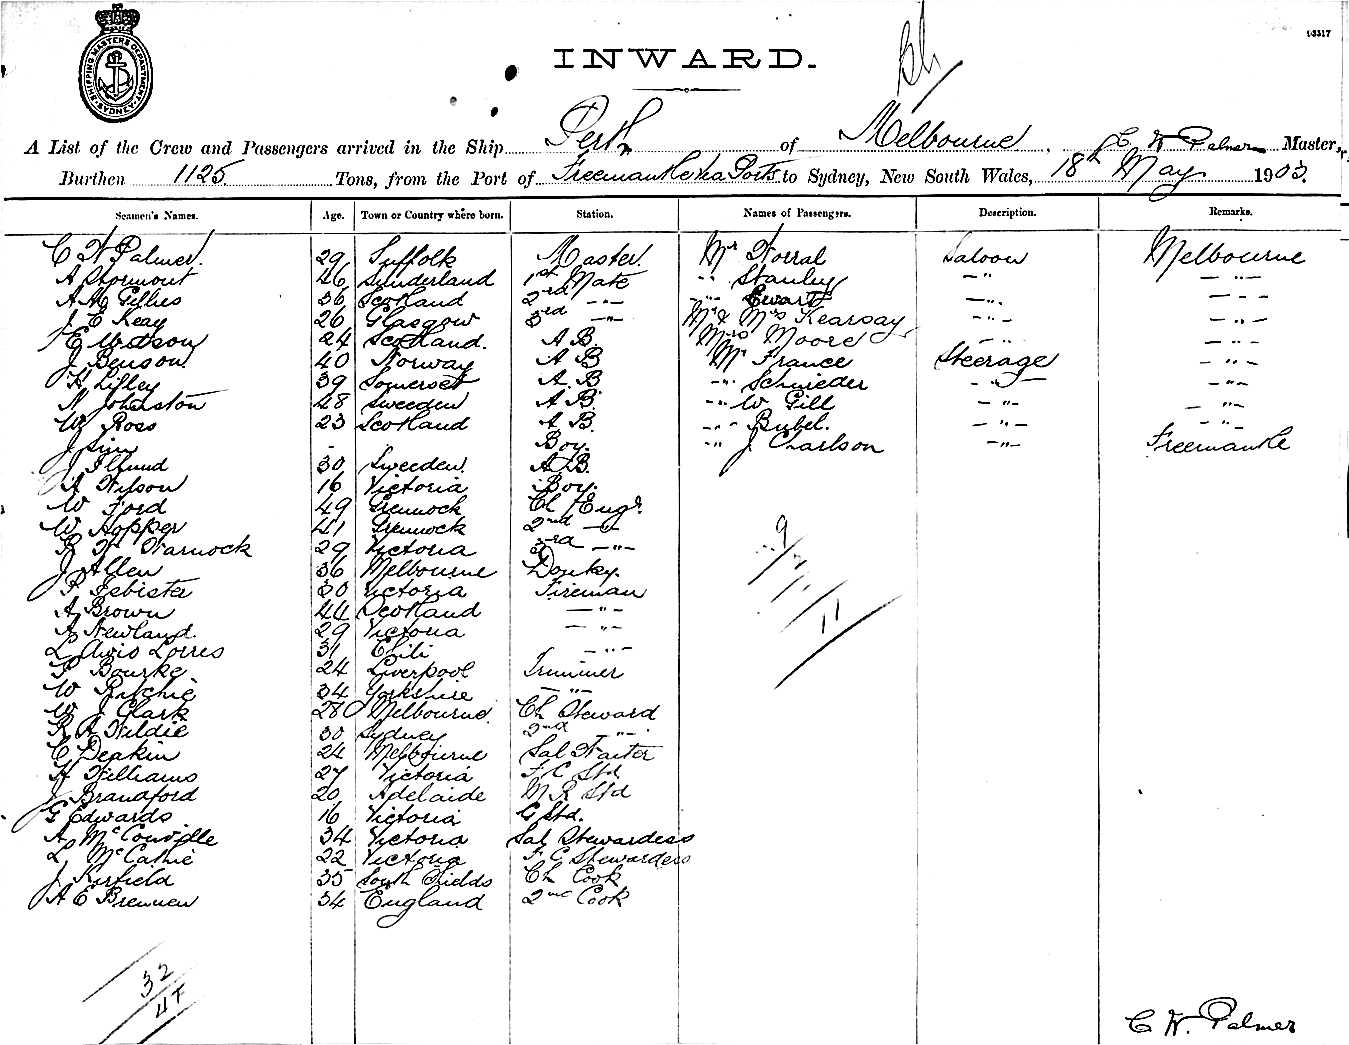 SHIPPING MASTERS DEPARTMENT SYDNEY
INWARD.
A List of the Crew and Passengers arrived in the Ship Perth of Melbourne, C W Palmer Master,
Burthen 1125 Tons, from the Port of Freemantle via Ports to Sydney, New South Wales, 18th May 1903.
Seamen's Names. Age. Town or Country where born. Station. Names of Passengers. Description. Remarks.
C W Palmer. 29 Suffolk Master. Mr Worral Saloon Melbourne
A Stormont 46 Sunderland 1st Mate " Stanley -"- -"-
A M Gillies 36 Scotland 2nd -"- " Ewart -"- -"-
J E Keay 26 Glasgow 3rd -"- Mr & Mrs Kearsay -"- -"-
E Watson 24 Scotland. A B. Mrs Moore -"- -"-
J Benson 40 Norway A B Mr France Steerage -"-
H Lilley 39 Somerset A. B -"- Schnieder -"- -"-
N Johnston 48 Sweeden A B. -"- W Gill -"- -"-
W Ross 23 Scotland A B. -"- Bubel. -"- -"-
J Sim - Boy. -"- J Charlson -"- Freemantle
J Flund 30 Sweeden. A B.
A Wilson 16 Victoria Boy.
W Ford 49 Greenock Ch Engr.
W Hopper 41 Greenock 2nd -"-
R W Warnock 29 Victoria 3rd -"-
J Allen 36 Melbourne Donky.
P Febister 30 Victoria Fireman
A Brown 44 Scotland -"-
A Newland. 29 Victoria -"-
L Lorres 31 Chili -"-
P Bourke 24 Liverpool Trimmer
W Ritchie 34 Yorkshire -"-
W J Clark 28 Melbourne. Ch Steward
R A Wildie 30 Sydney 2nd -"-
C Deakin 24 Melbourne Sal Waiter
H Williams 27 Victoria F. C Std
J Brandford 20 Adelaide M R Std
G Edwards 16 Victoria G Std.
A McConville 34 Victoria Sal Stewardess
L McCathie 22 Victoria F C Stewardess
J Kirfield 35 South Shields Ch Cook
A E Brennen 34 England 2nd Cook
9
2
11
32
C W. Palmer